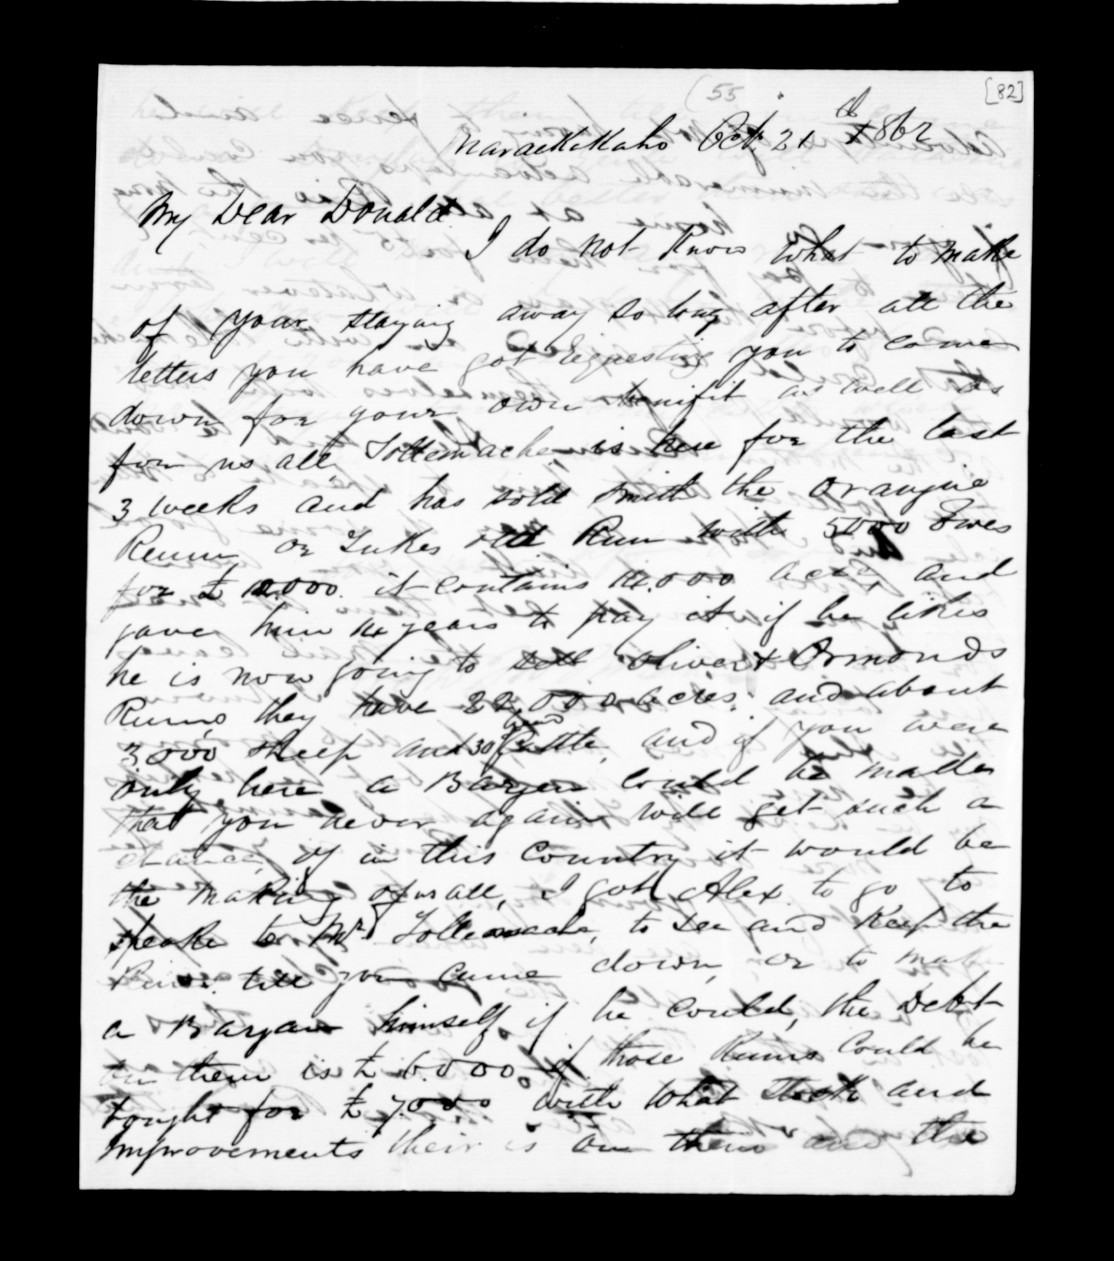 (55
[82]
Maraekakaho Oct. 21st 1862
My Dear Donald
I do not know what to make
of your staying away so long after all the
letters you have got requesting you to come
down for your own benifit as well as
for us all, Tollemache is here for the last
3 weeks and has sold Smith the
Runn, or Lukes old Run with 5000 Ewes
for £ it contains acres, and
gave him years to pay it if he likes
he is now going to sell Oliver & Ormonds
Runs, they have 22,000 acres, and about
3000 sheep and 30 head Cattle, and if you were
only here a Bargen could be made
that you never again will get such a
chance, if in this Country it would be
the making of us all, I got Alex to go to
speake to Mr Tollemache, to see and keep the
Runs till you came down, or to make
a Bargan himself if he could, the Debt
on them is £6.000, if those Runs could be
bought for £7000 with what stock and
improvements their is on them and the